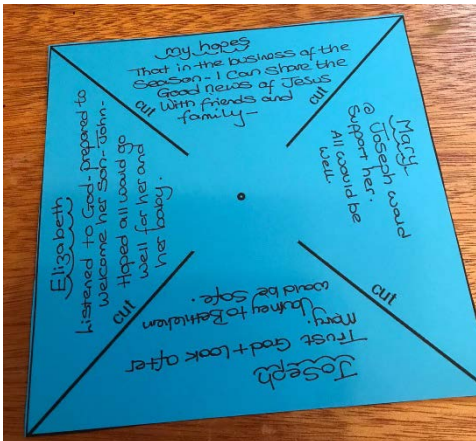 my hopes
That in the business of the
Season - I can share the
Good news of Jesus
with friends and
family -
cut
cut
Mary
@ Joseph would
Support her.
All would be
well.
cut
Joseph
Trust God + Look after
Mary. Journey to Bethlehem
would be safe.
cut
Elizabeth
Listened to God, prepared to
welcome her son - John -
Hoped all would go
well for her and
her baby.